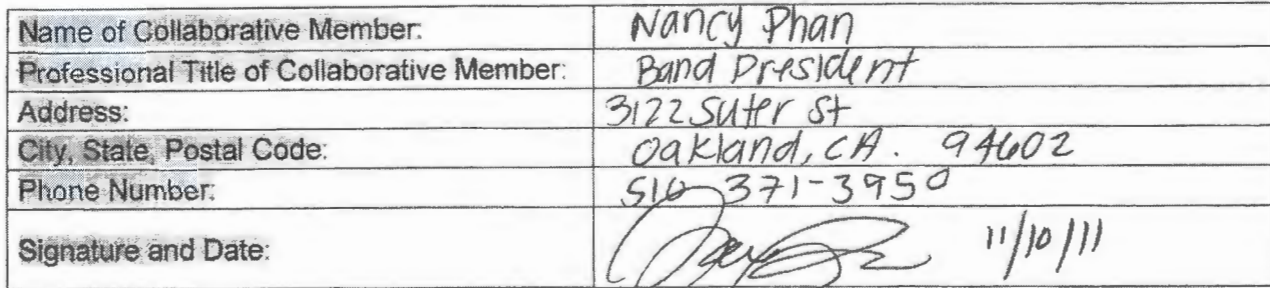 Name of Collaborative Member: Nancy Phan
Professional Title of Collaborative Member: Band President
Address: 3122 Suter St
City, State, Postal Code: Oakland, CA. 94602
Phone Number: 510 371-3950
Signature and Date: 11/10/11